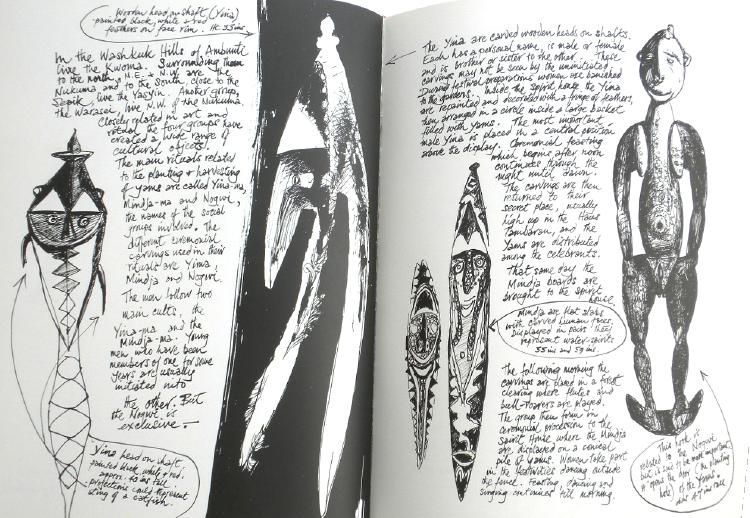 Wooden head on shaft, (Yina)
painted black, white & red
feathers on face rim. Ht 33 ins
In the Washkuk Hills of Ambunti
live the Kwoma. Surrounding them
to the north, N.E. & N.W. are the
Nukuma and to the South, close to the
Sepik, live the Yasyin. Another group,
the Warasei, live N.W. of the Nukuma.
Closely related in art and
ritual the four groups have
created a wide range of
cultural objects.
The main rituals related
to the planting & harvesting
of yams are called Yina-ma,
Mindja-ma and Nogwi,
the names of the social
groups involved. The
different ceremonial
carvings used in their
rituals are Yina,
Mindja and Nogwi.
The men follow two
main cults, the
Yina-ma and the
Mindja-ma. Young
men who have been
members of one for some
years are usually
initiated into
the other. But
the Nogwi is
exclusive.
Yina head on shaft
painted black, white & red.
approx. 40 ins tall
projections could represent
sting of a catfish.
The Yina are carved wooden heads on shafts.
Each has a personal name, is male or female
and is brother or sister to the other. These
carvings may not be seen by the uninitiated.
During festival preparations women are banished
to the gardens. Inside the spirit house the Yina
are repainted and decorated with a fringe of feathers,
then arranged in a circle inside a large basket
filled with yams. The most important
male Yina is placed in a central position
above the display. Ceremonial feasting
which begins after noon
continues through the
night until dawn.
The carvings are then
returned to their
secret place, usually
high up in the Haus
Tambaran, and the
yams are distributed
among the celebrants.
That same day the
Mindja boards are
brought to the spirit
house.
Mindja are flat slabs
with carved human faces.
Displayed in pairs they
represent water-spirits
55 ins and 59 ins.
The following morning the
carvings are placed in a forest
clearing where flutes and
bull-roarers are played.
The group then form in
ceremonial procession to the
Spirit House where the Mindja
are displayed on a conical
pile of yams. Women take part
in the festivities dancing outside
the fence. Feasting, dancing and
singing continues till morning.
This hook is
related to the Nogwi
but is one of the most important,
it 'opens the door' (the planting
hole) of the yams.
ins tall